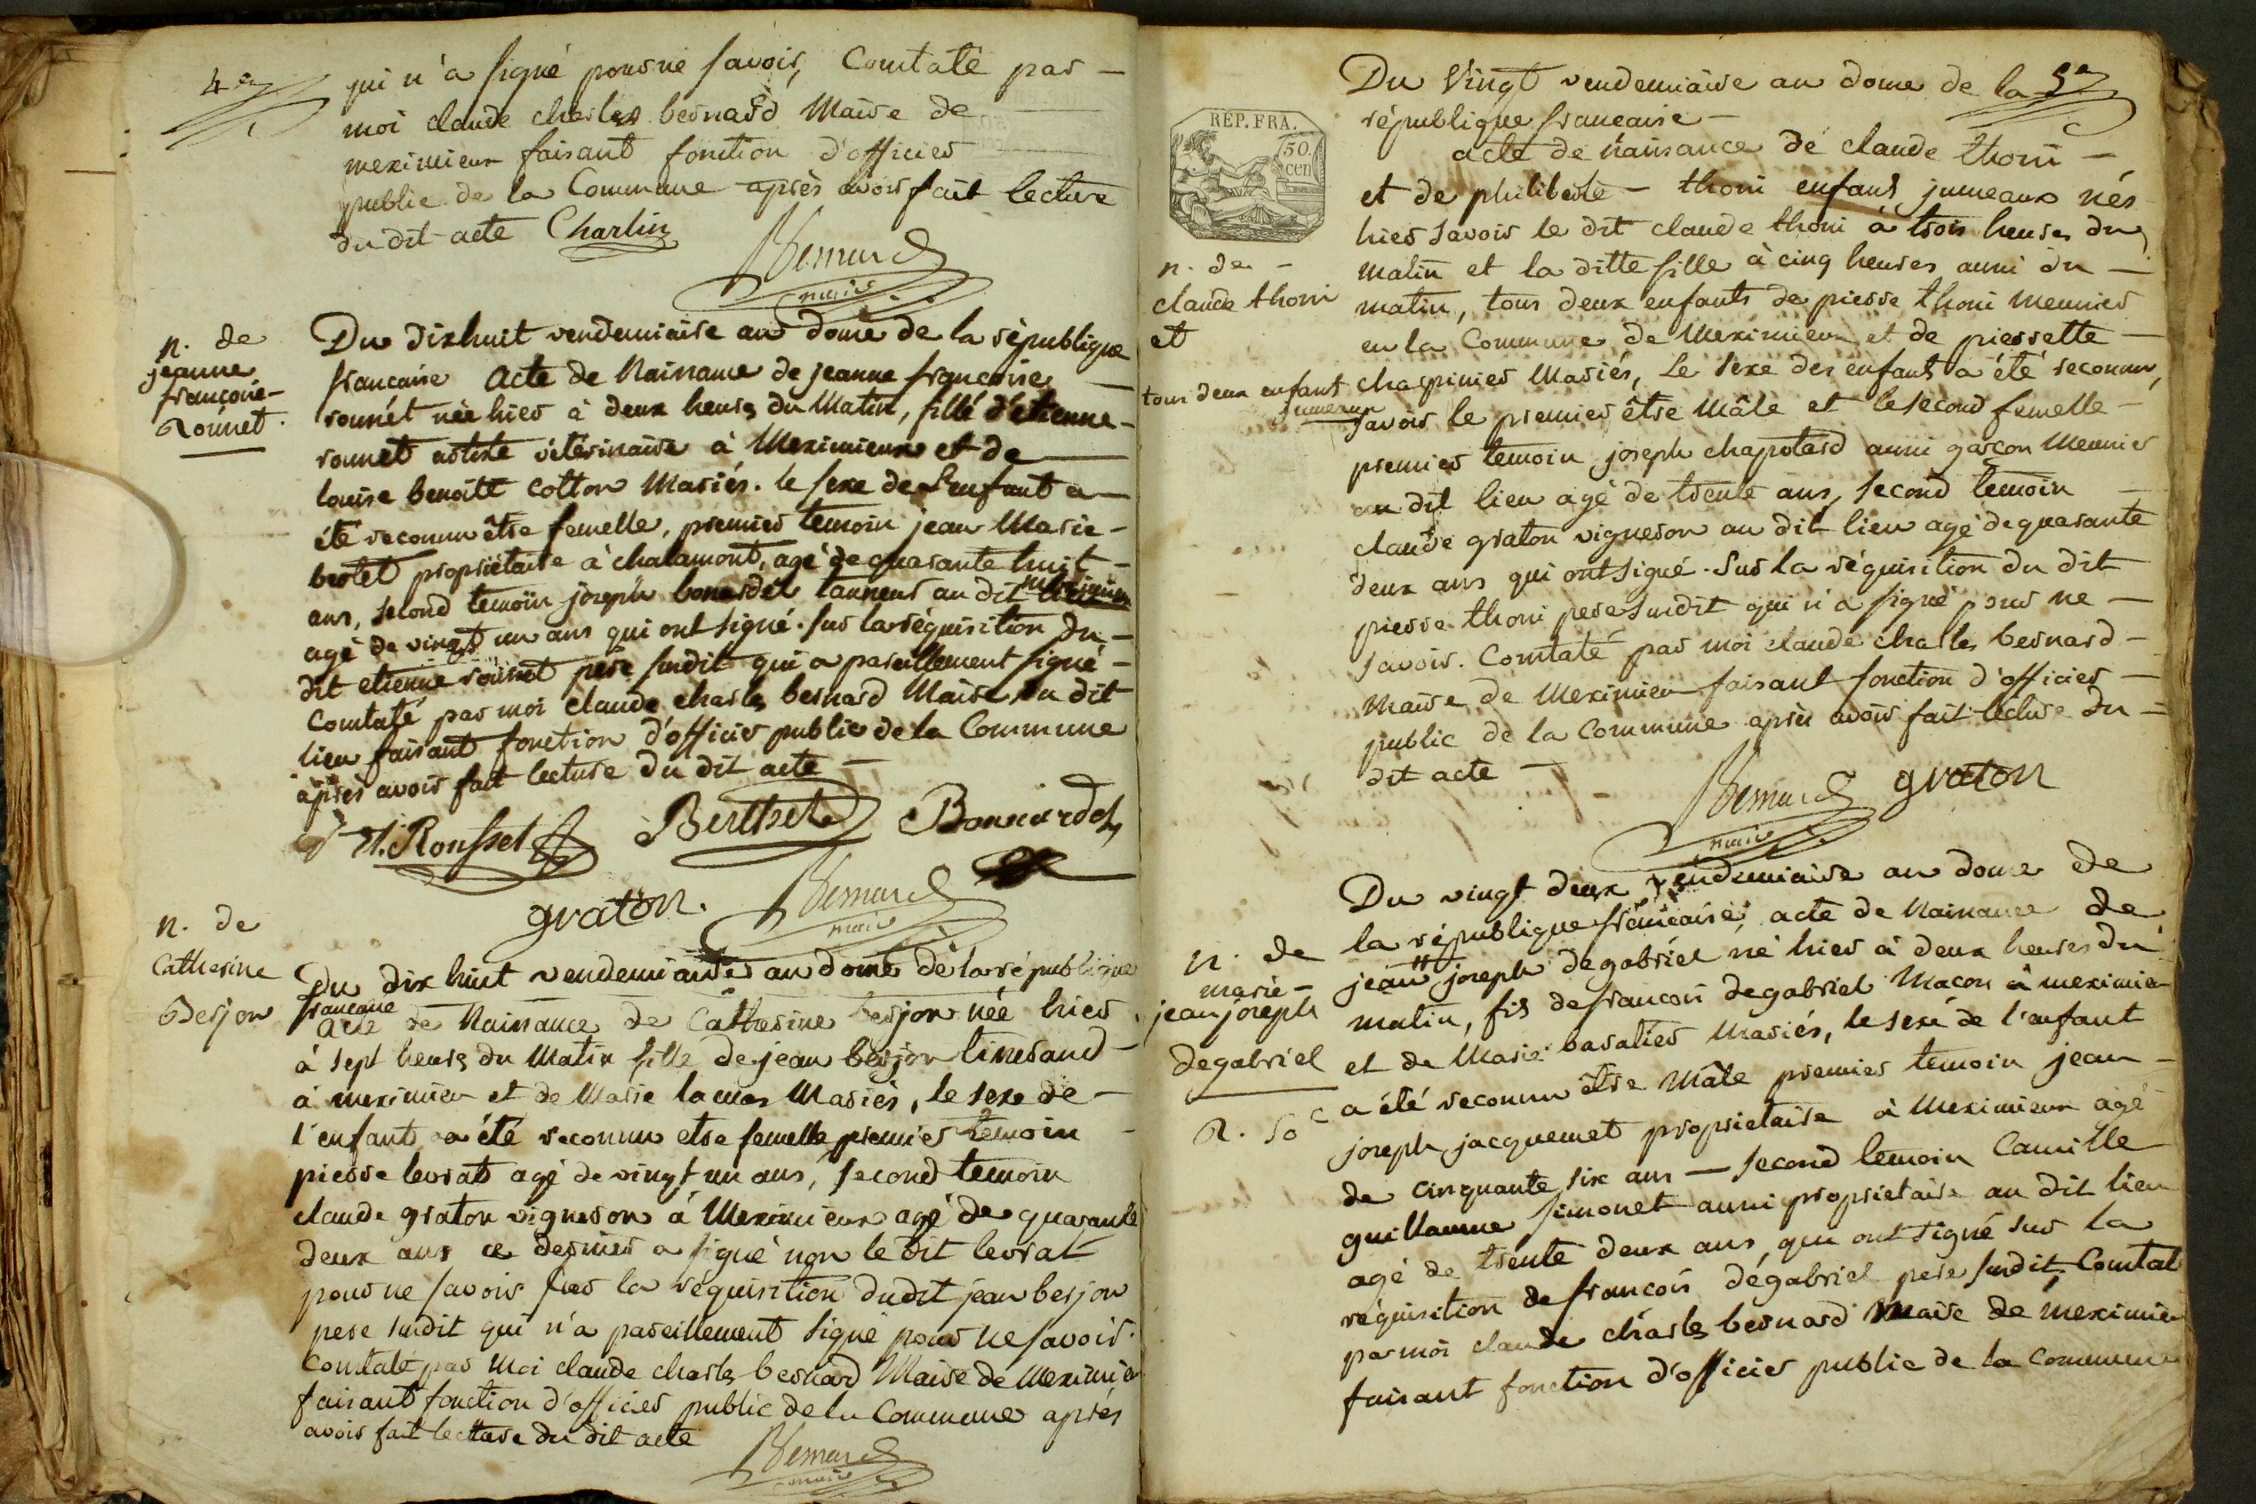 4e
qui n'a signé pour ne savoir, Constaté par —
moi claude charles bernard Maire de
meximieux faisant fonction d'officier
public de la Commune après avoir fait lecture
du dit acte Charlin
Bernard
maire
n. de
jeanne
françoise
Roussét.
Du dixhuit vendemiaire an douze de la république
francaise Acte de Naissance de jeanne françoise
roussét née hier à deux heures du Matin, fille d'etienne
roussét artiste vétérinaire à Meximieux et de
louise benoitt cotton Mariés. le sexe de l'enfant a
été reconnu être femelle, premier temoin jean Marie
bertet propriétaire à chalamont, agé de quarante huit
ans, second temoin joseph bonardél tanneur au dit meximieux
agé de vingt un ans qui ont signé. Sur la réquisition du
dit etienne roussét père susdit qui a pareillement signé
Constaté par moi claude charles bernard Maire du dit
lieu faisant fonction d'officier public de la Commune
après avoir fait lecture du dit acte —
Rousset Berthet Bonnardel
graton. Bernard
maire
n. de
Catherine
berjon
Du dix huit vendemiaire an douze de la république
francaise
acte de Naissance de Catherine berjon née hier
à sept heures du Matin fille de jean berjon tisserand
à meximieux et de Marie Mariés, le sexe de
l'enfant a été reconnu etre femelle premier temoin
pierre levrat agé de vingt un ans, second temoin
claude graton vigneron à Meximieux agé de quarante
deux ans ce dernier a signé non le dit levrat
pour ne savoir sur la réquisition dudit jean berjon
pere susdit qui n'a pareillement signé pour ne savoir.
Constaté par Moi claude charles bernard Maire de Meximieux
faisant fonction d'officier public de la Commune après
avoir fait lecture du dit acte
Bernard
maire
5e
RÉP. FRA.
50
cen
Du Vingt vendemiaire an douze de la
république francaise —
acte de naissance de claude thoni —
et de philiberte — thoni enfans jumeaux nés
hier savoir le dit claude thoni à trois heures du
matin et la ditte fille à cinq heures aussi du —
matin, tous deux enfants de pierre thoni Meunier
en la Commune de Meximieux et de pierrette —
Mariés, Le sexe des enfants a été reconnu,
savoir le premier être Mâle et le second femelle —
premier temoin joseph chapotard aussi garçon Meunier
au dit lieu agé de trente ans, second temoin
claude graton vigneron au dit lieu agé de quarante
deux ans qui ont signé. Sur la réquisition du dit
pierre thoni pere susdit qui n'a signé pour ne —
savoir. Constaté par moi claude charles bernard —
Maire de Meximieux faisant fonction d'officier —
public de la Commune après avoir fait lecture du —
dit acte —
Bernard graton
maire
n. de —
claude thoni
et
tous deux enfant
jumeaux
n. de
marie —
jean joseph
degabriel
Du vingt deux vendemiaire an douze de
la république francaise, acte de Naissance de
jean joseph degabriel né hier à deux heures du
matin, fils de francois degabriel Macon à meximieux
et de Marie Mariés, le sexe de l'enfant
a été reconnu être Mâle premier temoin jean —
joseph jacquemet propriétaire à Meximieux agé
de cinquante six ans — second temoin Camille
guillaume simonet aussi proprietaire au dit lieu
agé de trente deux ans, qui ont signé sur la
réquisition de francois dégabriel pere susdit, Constaté
par moi claude charles bernard Maire de meximieux
faisant fonction d'officier public de la commune